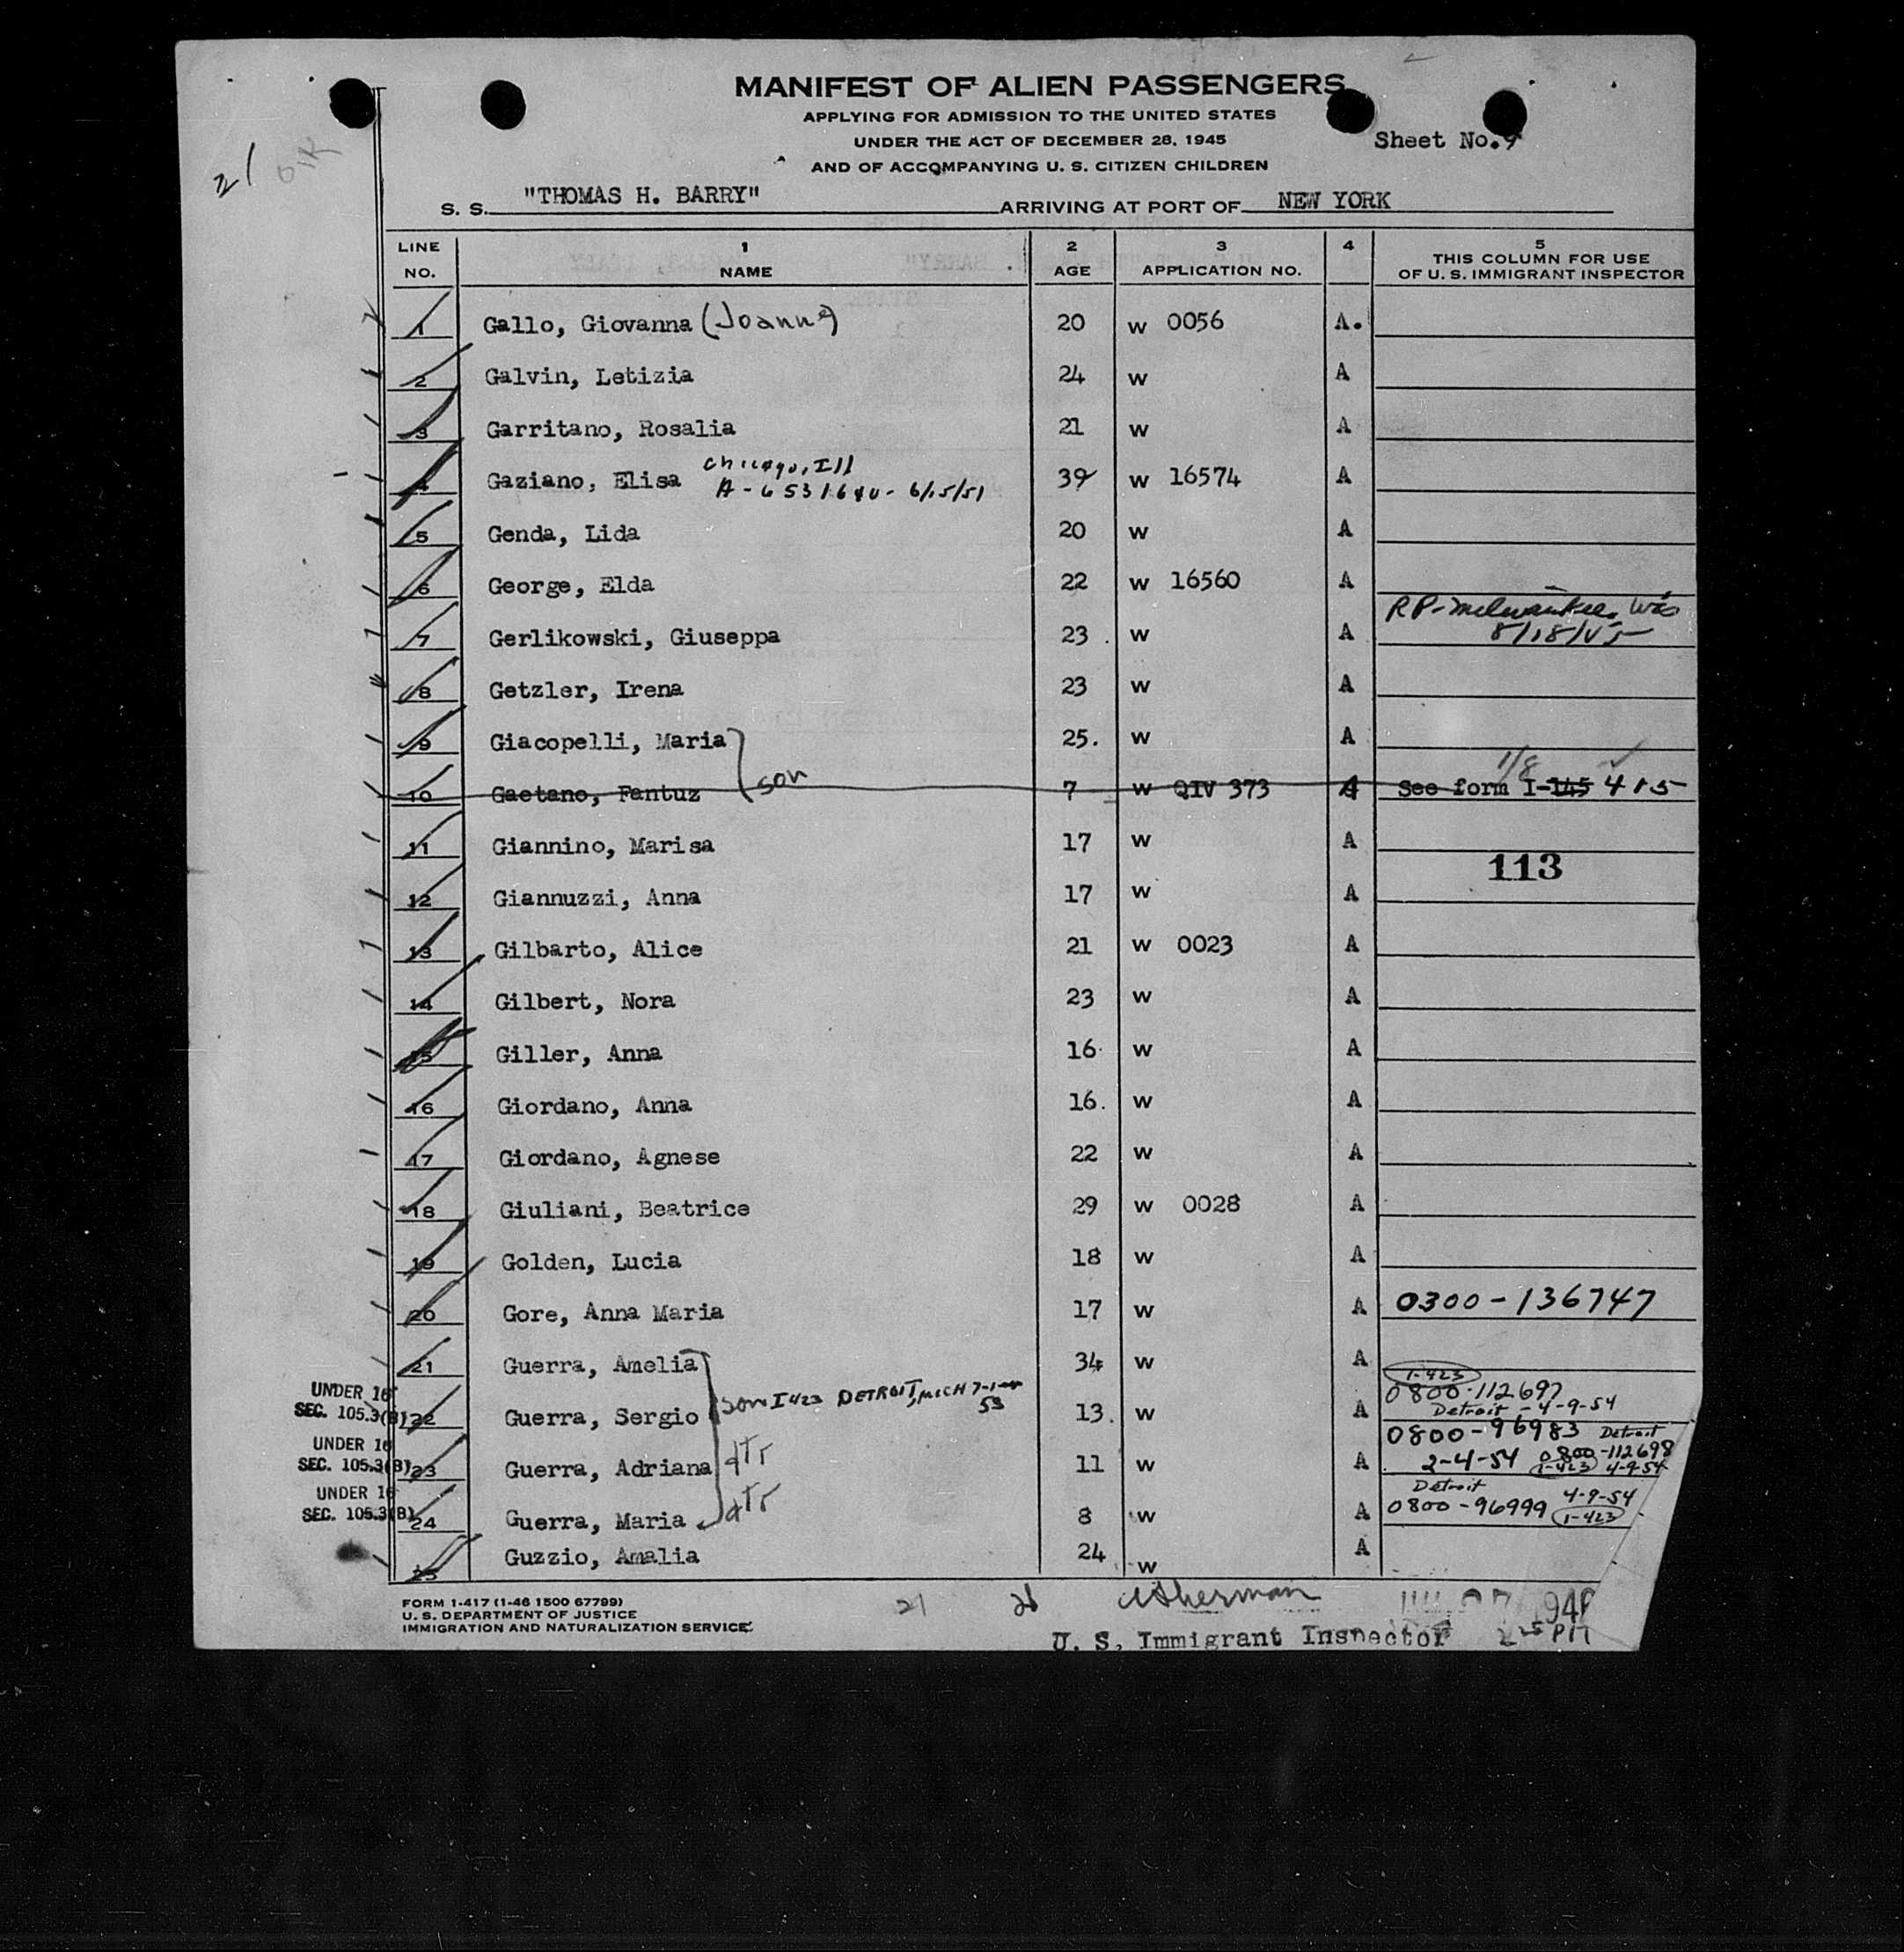 MANIFEST OF ALIEN PASSENGERS
APPLYING FOR ADMISSION TO THE UNITED STATES
UNDER THE ACT OF DECEMBER 28, 1945
AND OF ACCOMPANYING U. S. CITIZEN CHILDREN
Sheet No. 9
21 OK
S. S. "THOMAS H. BARRY" ARRIVING AT PORT OF NEW YORK
LINE NO. 1 NAME 2 AGE 3 APPLICATION NO. 4 5 THIS COLUMN FOR USE OF U. S. IMMIGRANT INSPECTOR
1 Gallo, Giovanna (Joanne) 20 W 0056 A.
2 Galvin, Letizia 24 W A
3 Garritano, Rosalia 21 W A
Chicago, Ill
4 Gaziano, Elisa A-6531640-6/15/51 39 W 16574 A
5 Genda, Lida 20 W A
6 George, Elda 22 W 16560 A
RP-Milwaukee, Wis
7 Gerlikowski, Giuseppa 23 . W A 8/18/
8 Getzler, Irena 23 W A
9 Giacopelli, Maria 25. W A
1/8
10 Gaetano, Fantuz son 7 W QIV 373 A See form I-145 415
11 Giannino, Marisa 17 W A
113
12 Giannuzzi, Anna 17 W A
13 Gilbarto, Alice 21 W 0023 A
14 Gilbert, Nora 23 W A
15 Giller, Anna 16 W A
16 Giordano, Anna 16. W A
17 Giordano, Agnese 22 W A
18 Giuliani, Beatrice 29 W 0028 A
19 Golden, Lucia 18 W A
20 Gore, Anna Maria 17 W A 0300-136747
21 Guerra, Amelia 34 W A
I-423
UNDER 16 0800-112697
SEC. 105.3(B) 22 Guerra, Sergio son I 423 DETROIT, MICH 7-1-53 13. W A Detroit - 4-9-54
UNDER 16 0800-96983 Detroit
SEC. 105.3(B) 23 Guerra, Adriana dtr 11 W A 2-4-54 0800-112698
I-423 4-9-54
UNDER 16 Detroit 4-9-54
SEC. 105.3(B) 24 Guerra, Maria dtr 8 W A 0800-96999 I-423
25 Guzzio, Amalia 24 W A
FORM I-417 (1-46 1500 67799)
U. S. DEPARTMENT OF JUSTICE
IMMIGRATION AND NATURALIZATION SERVICE
21 1946
U. S. Immigrant Inspector PM